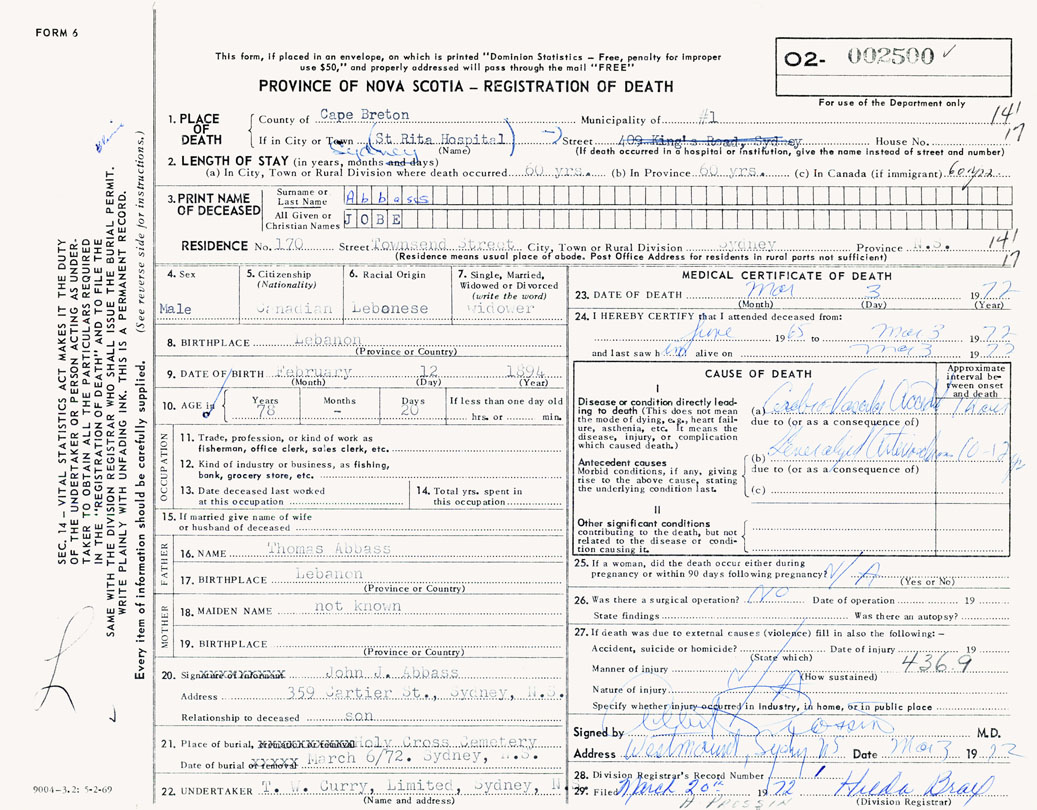 FORM 6
This form, if placed in an envelope, on which is printed "Dominion Statistics – Free, penalty for improper
use $50," and properly addressed will pass through the mail "FREE"
PROVINCE OF NOVA SCOTIA – REGISTRATION OF DEATH
O2- 002500 ✓
For use of the Department only
1. PLACE OF DEATH
County of Cape Breton Municipality of #1 141
17
If in City or Town (St Rita Hospital) Street 409 King's Road, Sydney House No.
Sydney (Name) (If death occurred in a hospital or institution, give the name instead of street and number)
2. LENGTH OF STAY (in years, months and days)
(a) In City, Town or Rural Division where death occurred 60 yrs. (b) In Province 60 yrs. (c) In Canada (if immigrant) 60 yrs
3. PRINT NAME OF DECEASED
Surname or Last Name Abbass
All Given or Christian Names JOBE
RESIDENCE No. 170 Street Townsend Street City, Town or Rural Division Sydney Province N.S. 141
17
(Residence means usual place of abode. Post Office Address for residents in rural parts not sufficient)
4. Sex
Male
5. Citizenship
(Nationality)
Canadian
6. Racial Origin
Lebonese
7. Single, Married,
Widowed or Divorced
(write the word)
widower
8. BIRTHPLACE Lebanon
(Province or Country)
9. DATE OF BIRTH February 12 1894
(Month) (Day) (Year)
10. AGE in
Years Months Days If less than one day old
78 – 20 hrs. or min.
OCCUPATION
11. Trade, profession, or kind of work as
fisherman, office clerk, sales clerk, etc.
12. Kind of industry or business, as fishing,
bank, grocery store, etc.
13. Date deceased last worked
at this occupation
14. Total yrs. spent in
this occupation
15. If married give name of wife
or husband of deceased
FATHER
16. NAME Thomas Abbass
17. BIRTHPLACE Lebanon
(Province or Country)
MOTHER
18. MAIDEN NAME not known
19. BIRTHPLACE
(Province or Country)
20. Signature of Informant John J. Abbass
Address 359 Cartier St., Sydney, N.S.
Relationship to deceased son
21. Place of burial, cremation or removal Holy Cross Cemetery
Date of burial or removal March 6/72. Sydney, N.S.
22. UNDERTAKER T. W. Curry, Limited, Sydney N.
(Name and address)
MEDICAL CERTIFICATE OF DEATH
23. DATE OF DEATH Mar 3 1972
(Month) (Day) (Year)
24. I HEREBY CERTIFY that I attended deceased from:
June 1965 to Mar 3 1972
and last saw him alive on Mar 3 1972
CAUSE OF DEATH
Approximate
interval be-
tween onset
and death
I
Disease or condition directly lead-
ing to death (This does not mean
the mode of dying, e.g., heart fail-
ure, asthenia, etc. It means the
disease, injury, or complication
which caused death.)
(a) Cerebro Vascular Accident
due to (or as a consequence of)
Antecedent causes
Morbid conditions, if any, giving
rise to the above cause, stating
the underlying condition last.
(b) Generalized 10-12 yrs
due to (or as a consequence of)
(c)
II
Other significant conditions
contributing to the death, but not
related to the disease or condi-
tion causing it.
25. If a woman, did the death occur either during
pregnancy or within 90 days following pregnancy? N/A
(Yes or No)
26. Was there a surgical operation? No Date of operation 19
State findings Was there an autopsy?
27. If death was due to external causes (violence) fill in also the following: –
Accident, suicide or homicide? Date of injury 19
(State which) 436.9
Manner of injury N/A
(How sustained)
Nature of injury
Specify whether injury occurred in Industry, in home, or in public place
Signed by M.D.
Address Westmount, Sydney NS Date Mar 3 1972
28. Division Registrar's Record Number
29. Filed March 20th 1972 Hilda Bray
(Division Registrar)
SEC. 14 – VITAL STATISTICS ACT MAKES IT THE DUTY
OF THE UNDERTAKER OR PERSON ACTING AS UNDER-
TAKER TO OBTAIN ALL THE PARTICULARS REQUIRED
IN THE "REGISTRATION OF DEATH" AND TO FILE THE
SAME WITH THE DIVISION REGISTRAR WHO SHALL ISSUE THE BURIAL PERMIT.
WRITE PLAINLY WITH UNFADING INK. THIS IS A PERMANENT RECORD.
Every item of information should be carefully supplied. (See reverse side for instructions.)
9004-3.2: 5-2-69